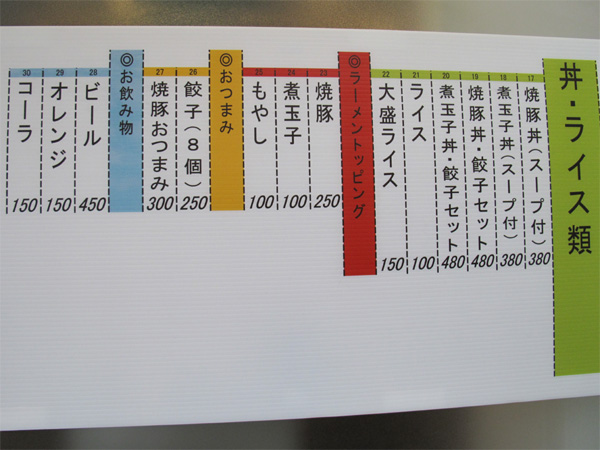 丼・ライス類
17 焼豚丼(スープ付) 380
18 煮玉子丼(スープ付) 380
19 焼豚丼・餃子セット 480
20 煮玉子丼・餃子セット 480
21 ライス 100
22 大盛ライス 150
◎ラーメントッピング
23 焼豚 250
24 煮玉子 100
25 もやし 100
◎おつまみ
26 餃子(8個) 250
27 焼豚おつまみ 300
◎お飲み物
28 ビール 450
29 オレンジ 150
30 コーラ 150